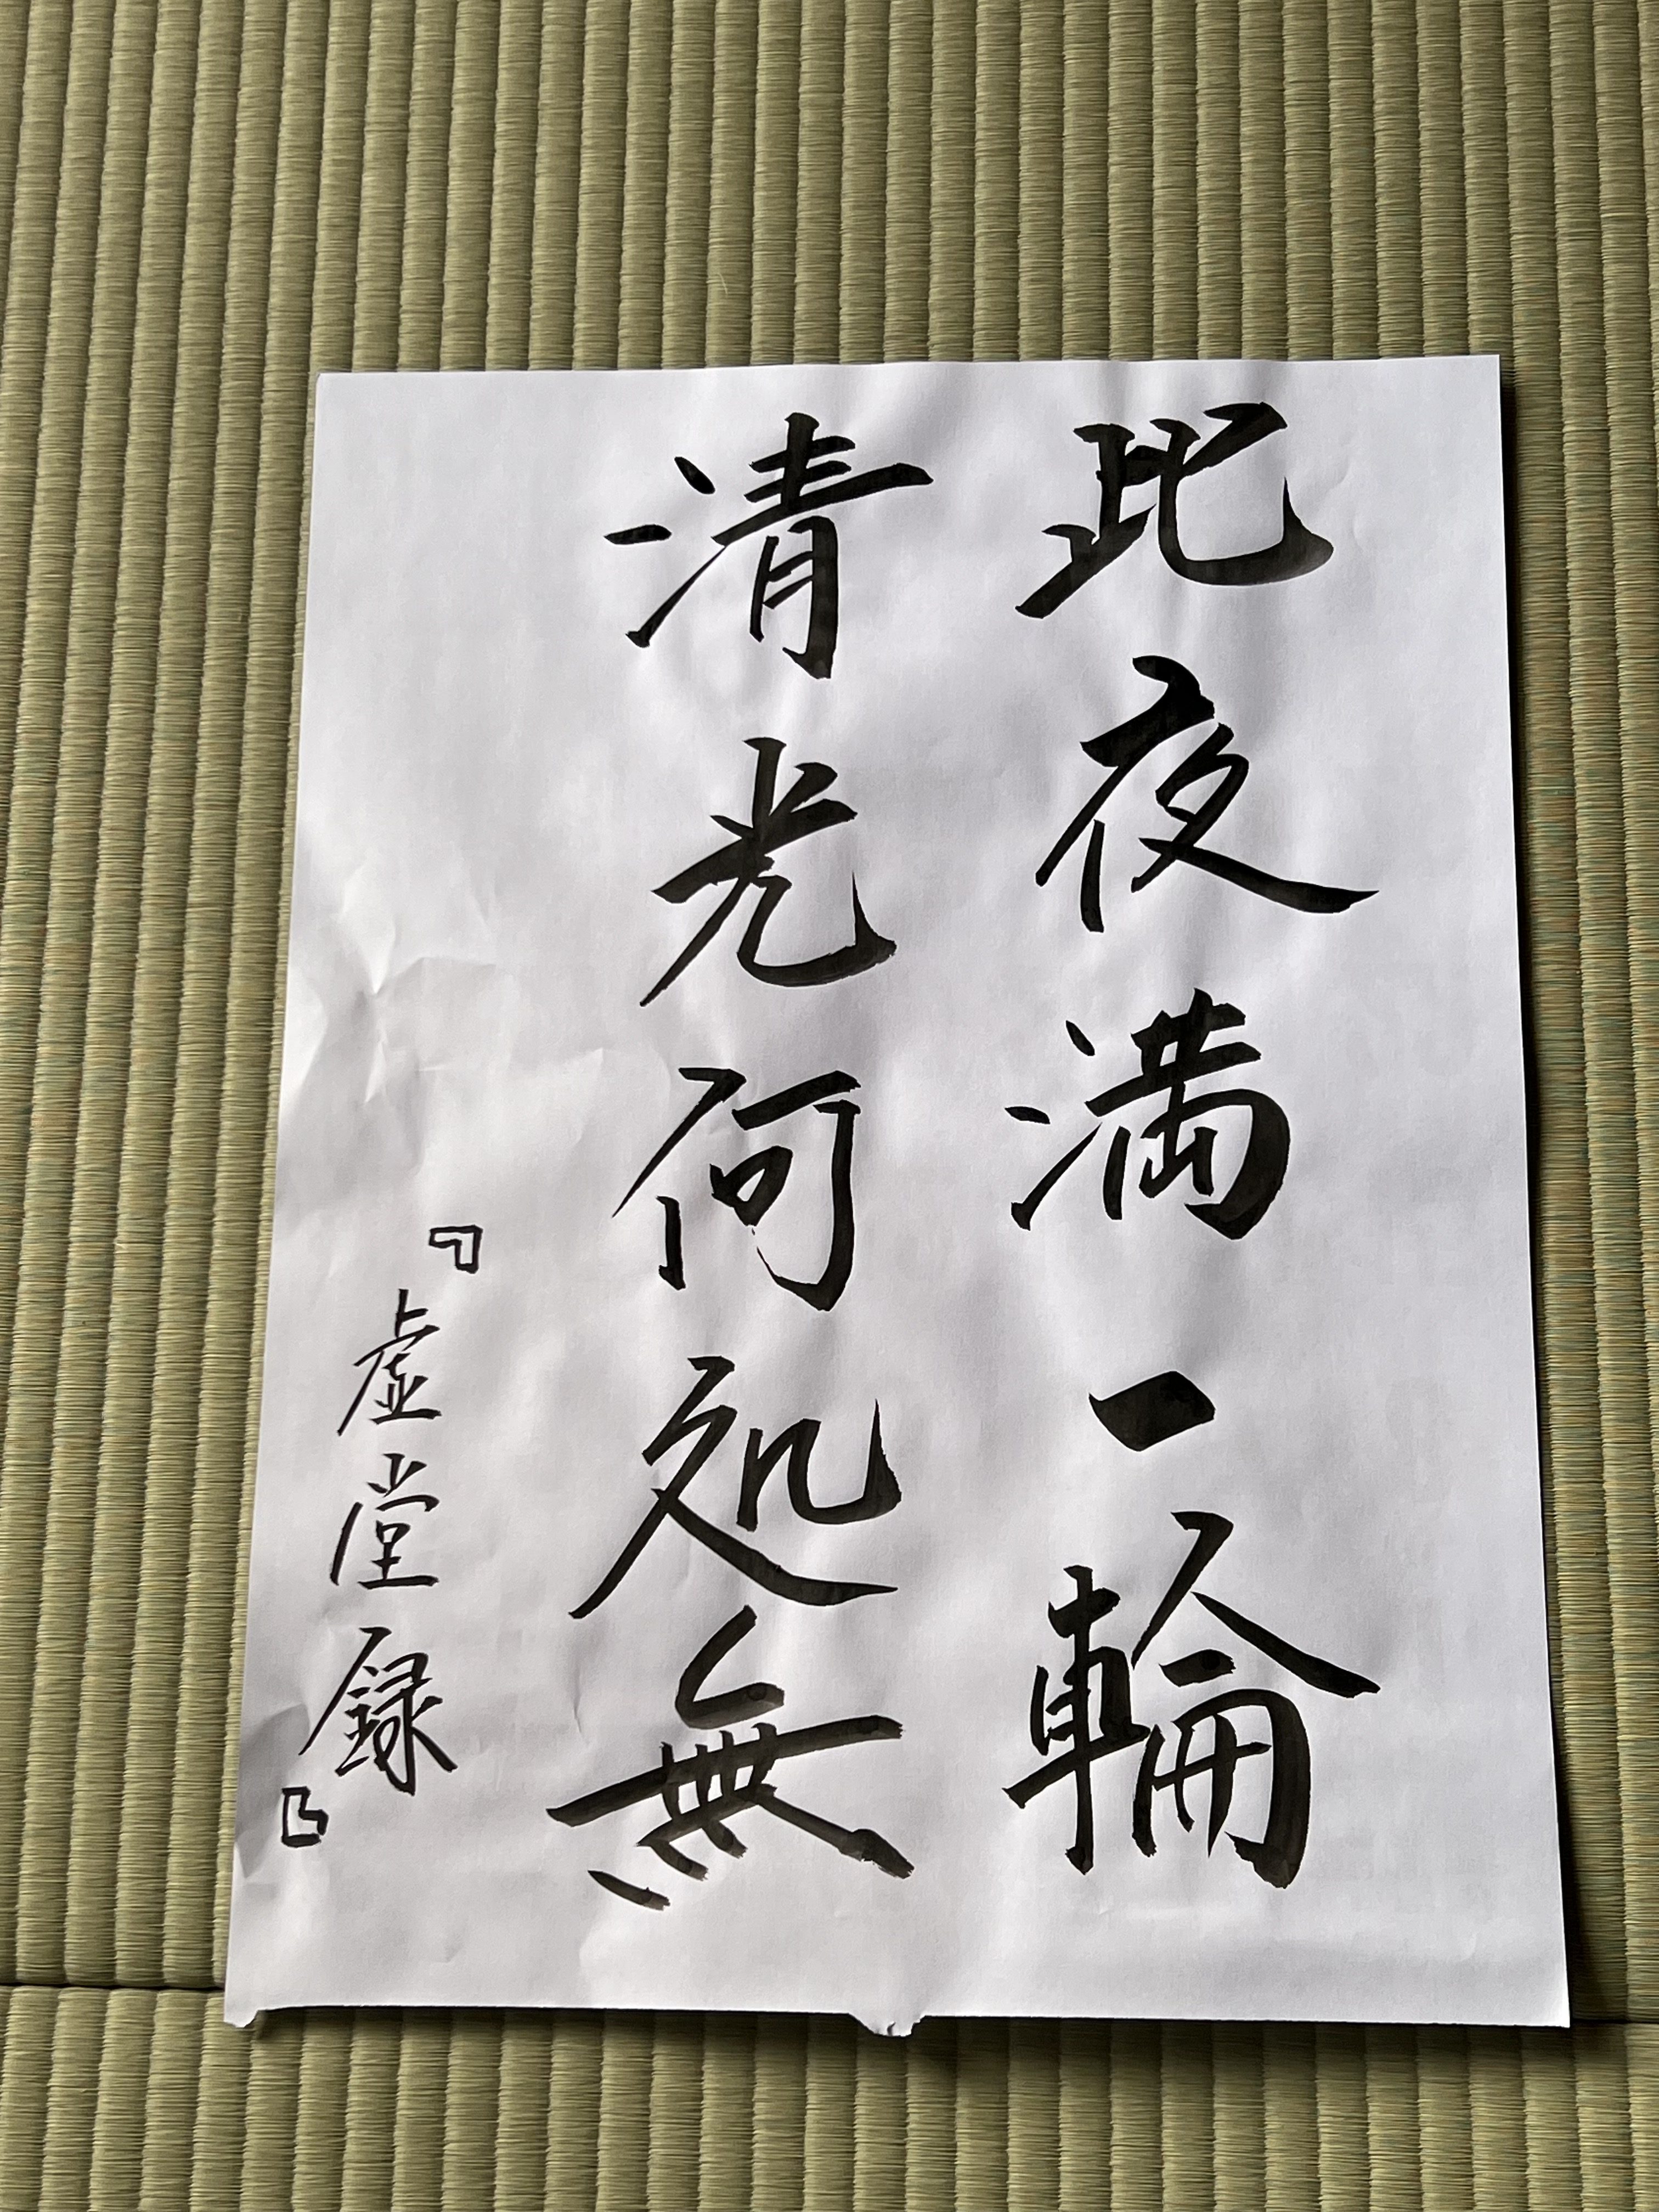 此夜満一輪
清光何処無
『虚堂録』